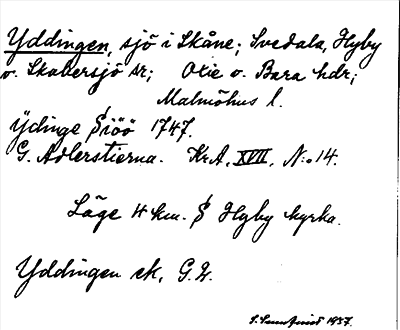 Yddingen, sjö i Skåne; Svedala, Hyby
o. Skabersjö sr; Oxie o. Bara hdr;
Malmöhus l.
Ydinge Siöö 1747.
G. Adlerstierna. Kr.A. XVII, N:o 14.
Läge 4 km. S Hyby kyrka.
Yddingen ek, G.
1937.